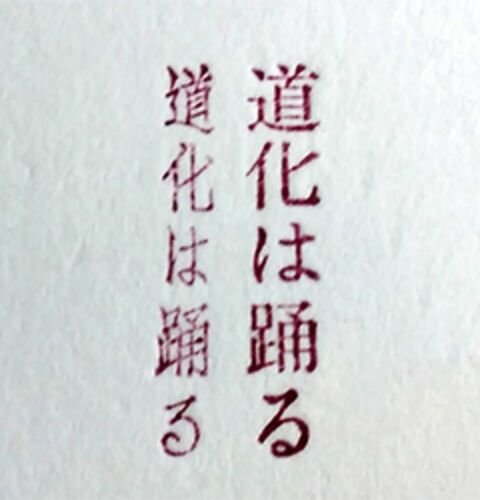 道化は踊る
道化は踊る